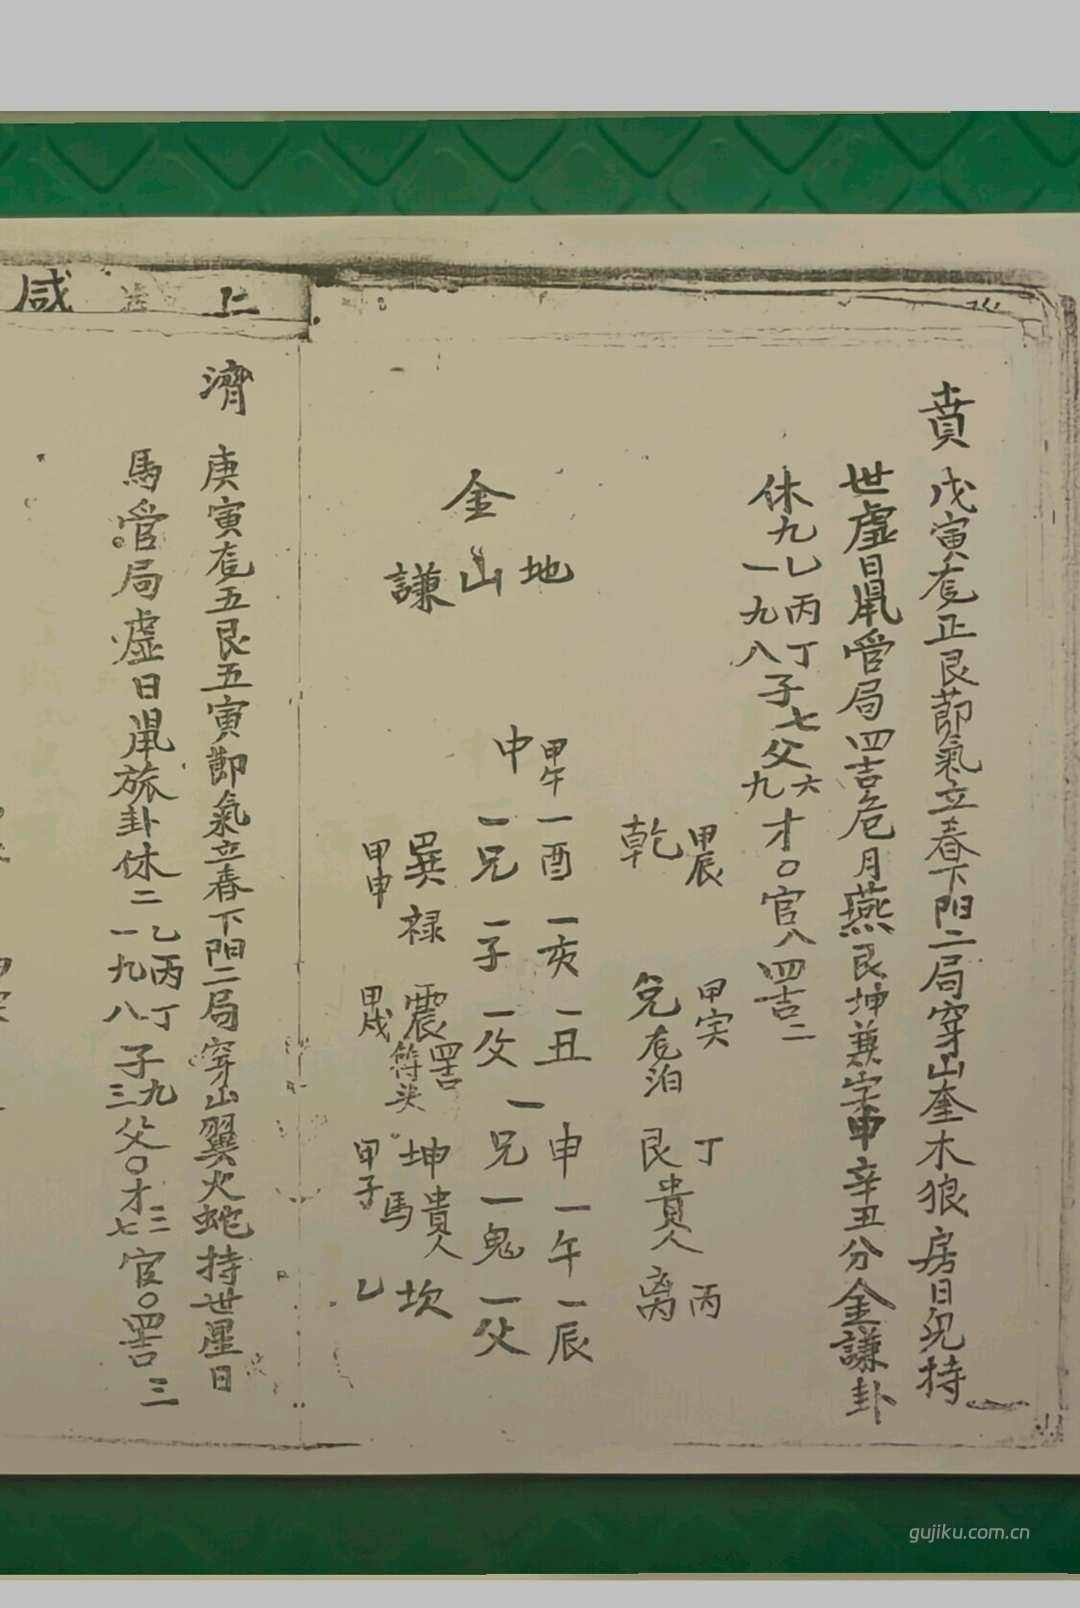 賁
戊寅㐫正艮節氣立春下阳二局穿山奎木狼房日兎持
世虛日鼠管局四吉危月燕艮坤兼字申辛丑分金謙卦
休九
乙丙丁
一九八
子七父
六
九
才〇官八四吉二
甲辰
乾
甲寅
兌
㐫泊
丁
艮貴人
丙
离
金
地
山
謙
甲午
中
一酉一亥一丑一申一午一辰
一兄一子一父一兄一鬼一父
巽禄
甲申
震
四吉
符头
甲戌
坤
貴人
馬
甲子
坎
乙
仁
濟
庚寅㐫五艮五寅節氣立春下阳二局穿山翼火蛇持世星日
馬管局虛日鼠旅卦休二
乙丙丁
一九八
子九
三父〇才三
七官〇四吉三
咸
gujiku.com.cn